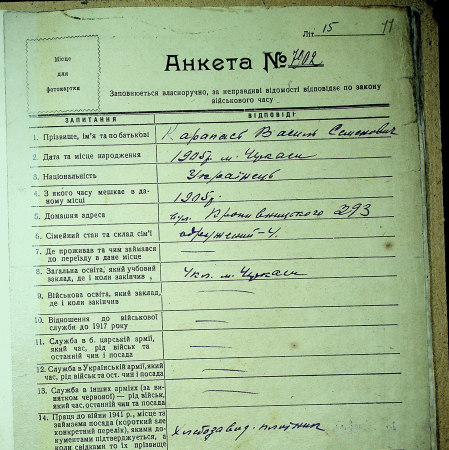 Літ. 15 11
Місце
для
фотокартки
Анкета № 7002
Заповнюється власноручно, за неправдиві відомості відповідає по закону
військового часу
ЗАПИТАННЯ ВІДПОВІДІ
1. Прізвище, ім'я та по батькові Карапась Василь Семенович
2. Дата та місце народження 1905р. м. Чукаси
3. Національність Українець
4. З якого часу мешкає в да-
ному місці 1905р.
5. Домашня адреса вул. Кропивницького 293
6. Сімейний стан та склад сім'ї одружений-4.
7. Де проживав та чим займався
до переїзду в дане місце
8. Загальна освіта, який учбовий
заклад, де і коли закінчив 4кл. м. Чукаси
9. Військова освіта, який заклад,
де і коли закінчив
10. Відношення до військової
служби до 1917 року
11. Служба в б. царській армії,
який час, рід військ та
останній чин і посада
12. Служба в Українській армії, який
час, рід військ та ост. чин і посада
13. Служба в інших арміях (за ви-
нятком червоної) — рід військ,
який час, останній чин та посада
14. Праця до війни 1941 р., місце та
займаєма посада (короткий але
конкретний перелік), якими до-
кументами підтверджується, а
коли свідками то їх прізвище
Хлєбозавод. плотник